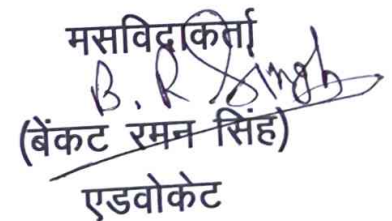 मसविदाकर्ता
B. R Singh
(बेंकट रमन सिंह)
एडवोकेट